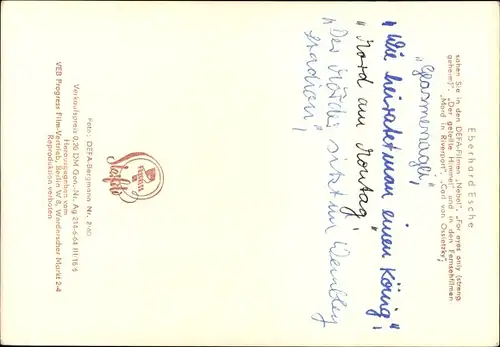 Eberhard Esche
sahen Sie in den DEFA-Filmen „Nebel“, „For eyes only (streng
geheim)“, „Der geteilte Himmel“ und in den Fernsehfilmen
„Mord in Riverport“, „Carl von Ossietzky“,
„Gasmenagli“,
„Wie heiratet man einen König“
„Mord am Montag“,
„Der Mörder sitzt im Wembley
stadion“,
PROGRESS
Starfoto
Foto: DEFA-Bergmann Nr. 2160
Verkaufspreis 0,20 DM Gen.-Nr. Ag 214-6-64 III/18 6
Herausgegeben vom
VEB Progress Film-Vertrieb, Berlin W 8, Werderscher Markt 2-4
Reproduktion verboten